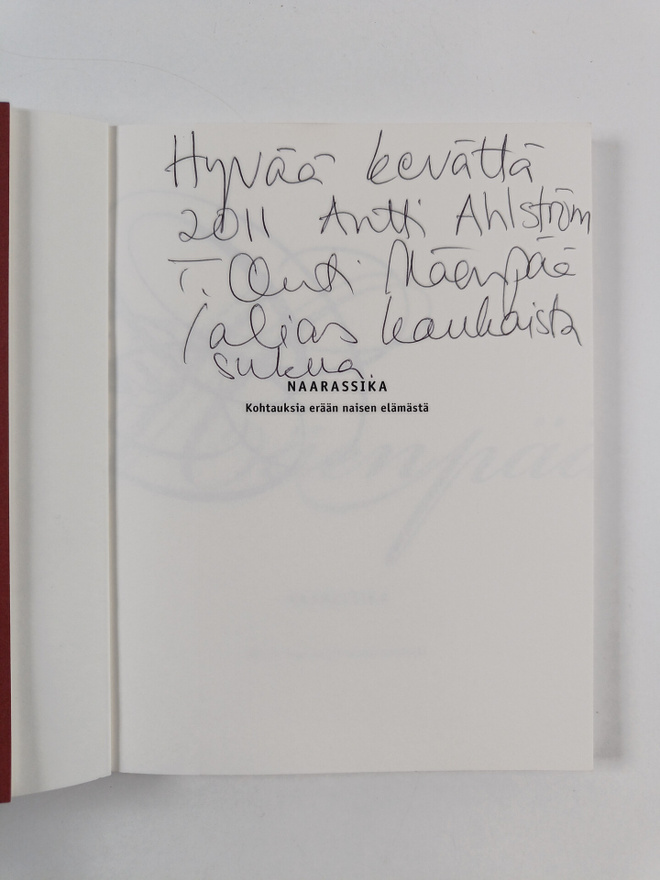 Hyvää kevättä
2011 Antti Ahlström
T. Outi Mäenpää
/alias kaukaista
sukua.
NAARASSIKA
Kohtauksia erään naisen elämästä